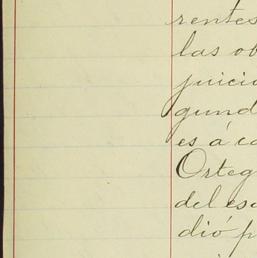 rentes
las ob
juicio
gund
es á co
Orteg
del es
dió p